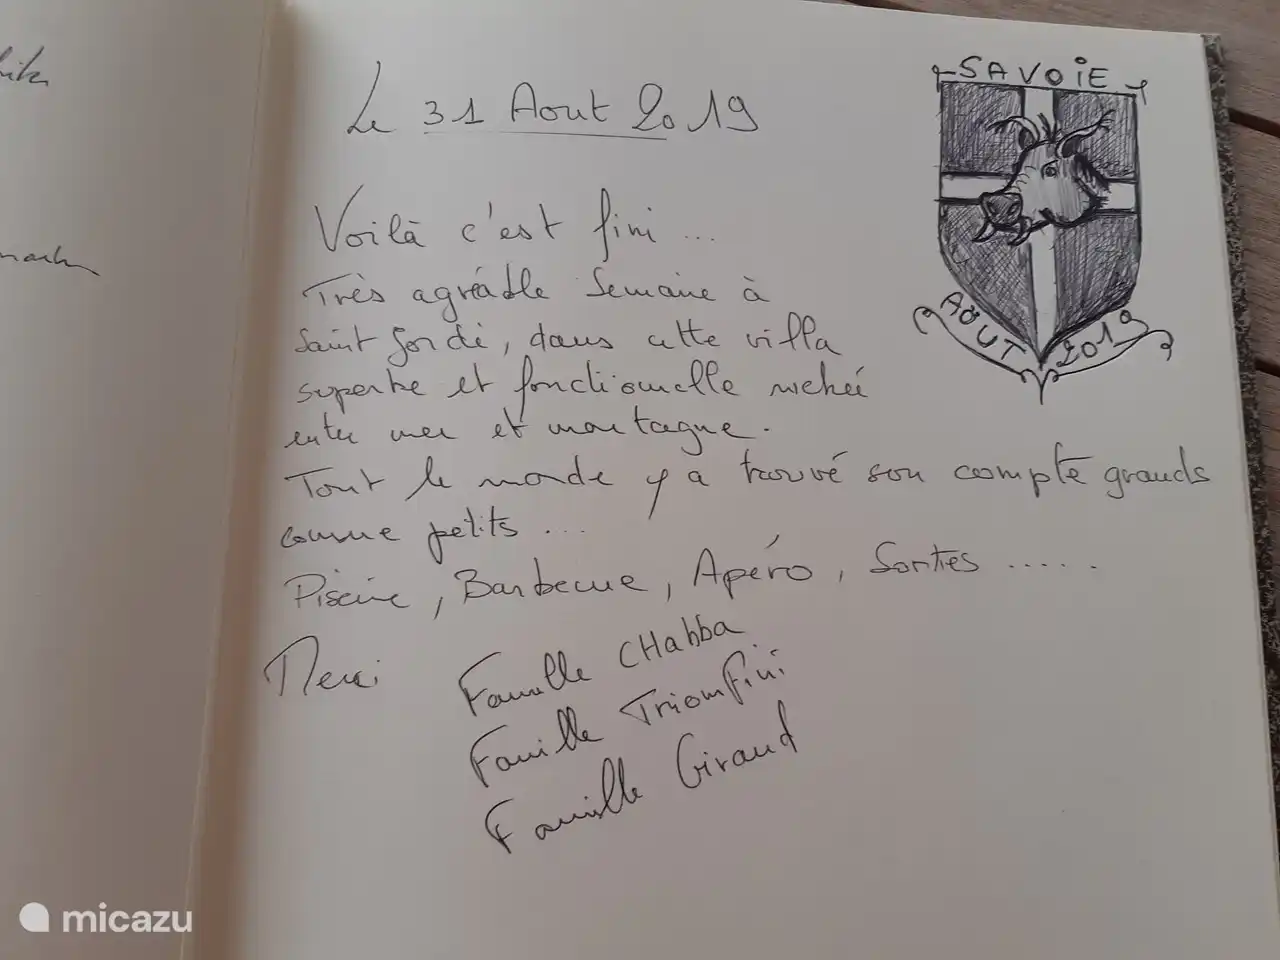 Le 31 Aout 2019
SAVOIE
AOUT 2019
Voilà c'est fini ...
Très agréable semaine à
Saint Jordi, dans cette villa
superbe et fonctionnelle nichée
entre mer et montagne.
Tout le monde y a trouvé son compte grands
comme petits ...
Piscine, Barbecue, Apéro, Sorties .....
Merci
Famille CHabba
Famille Triomfini
Famille Giraud
micazu